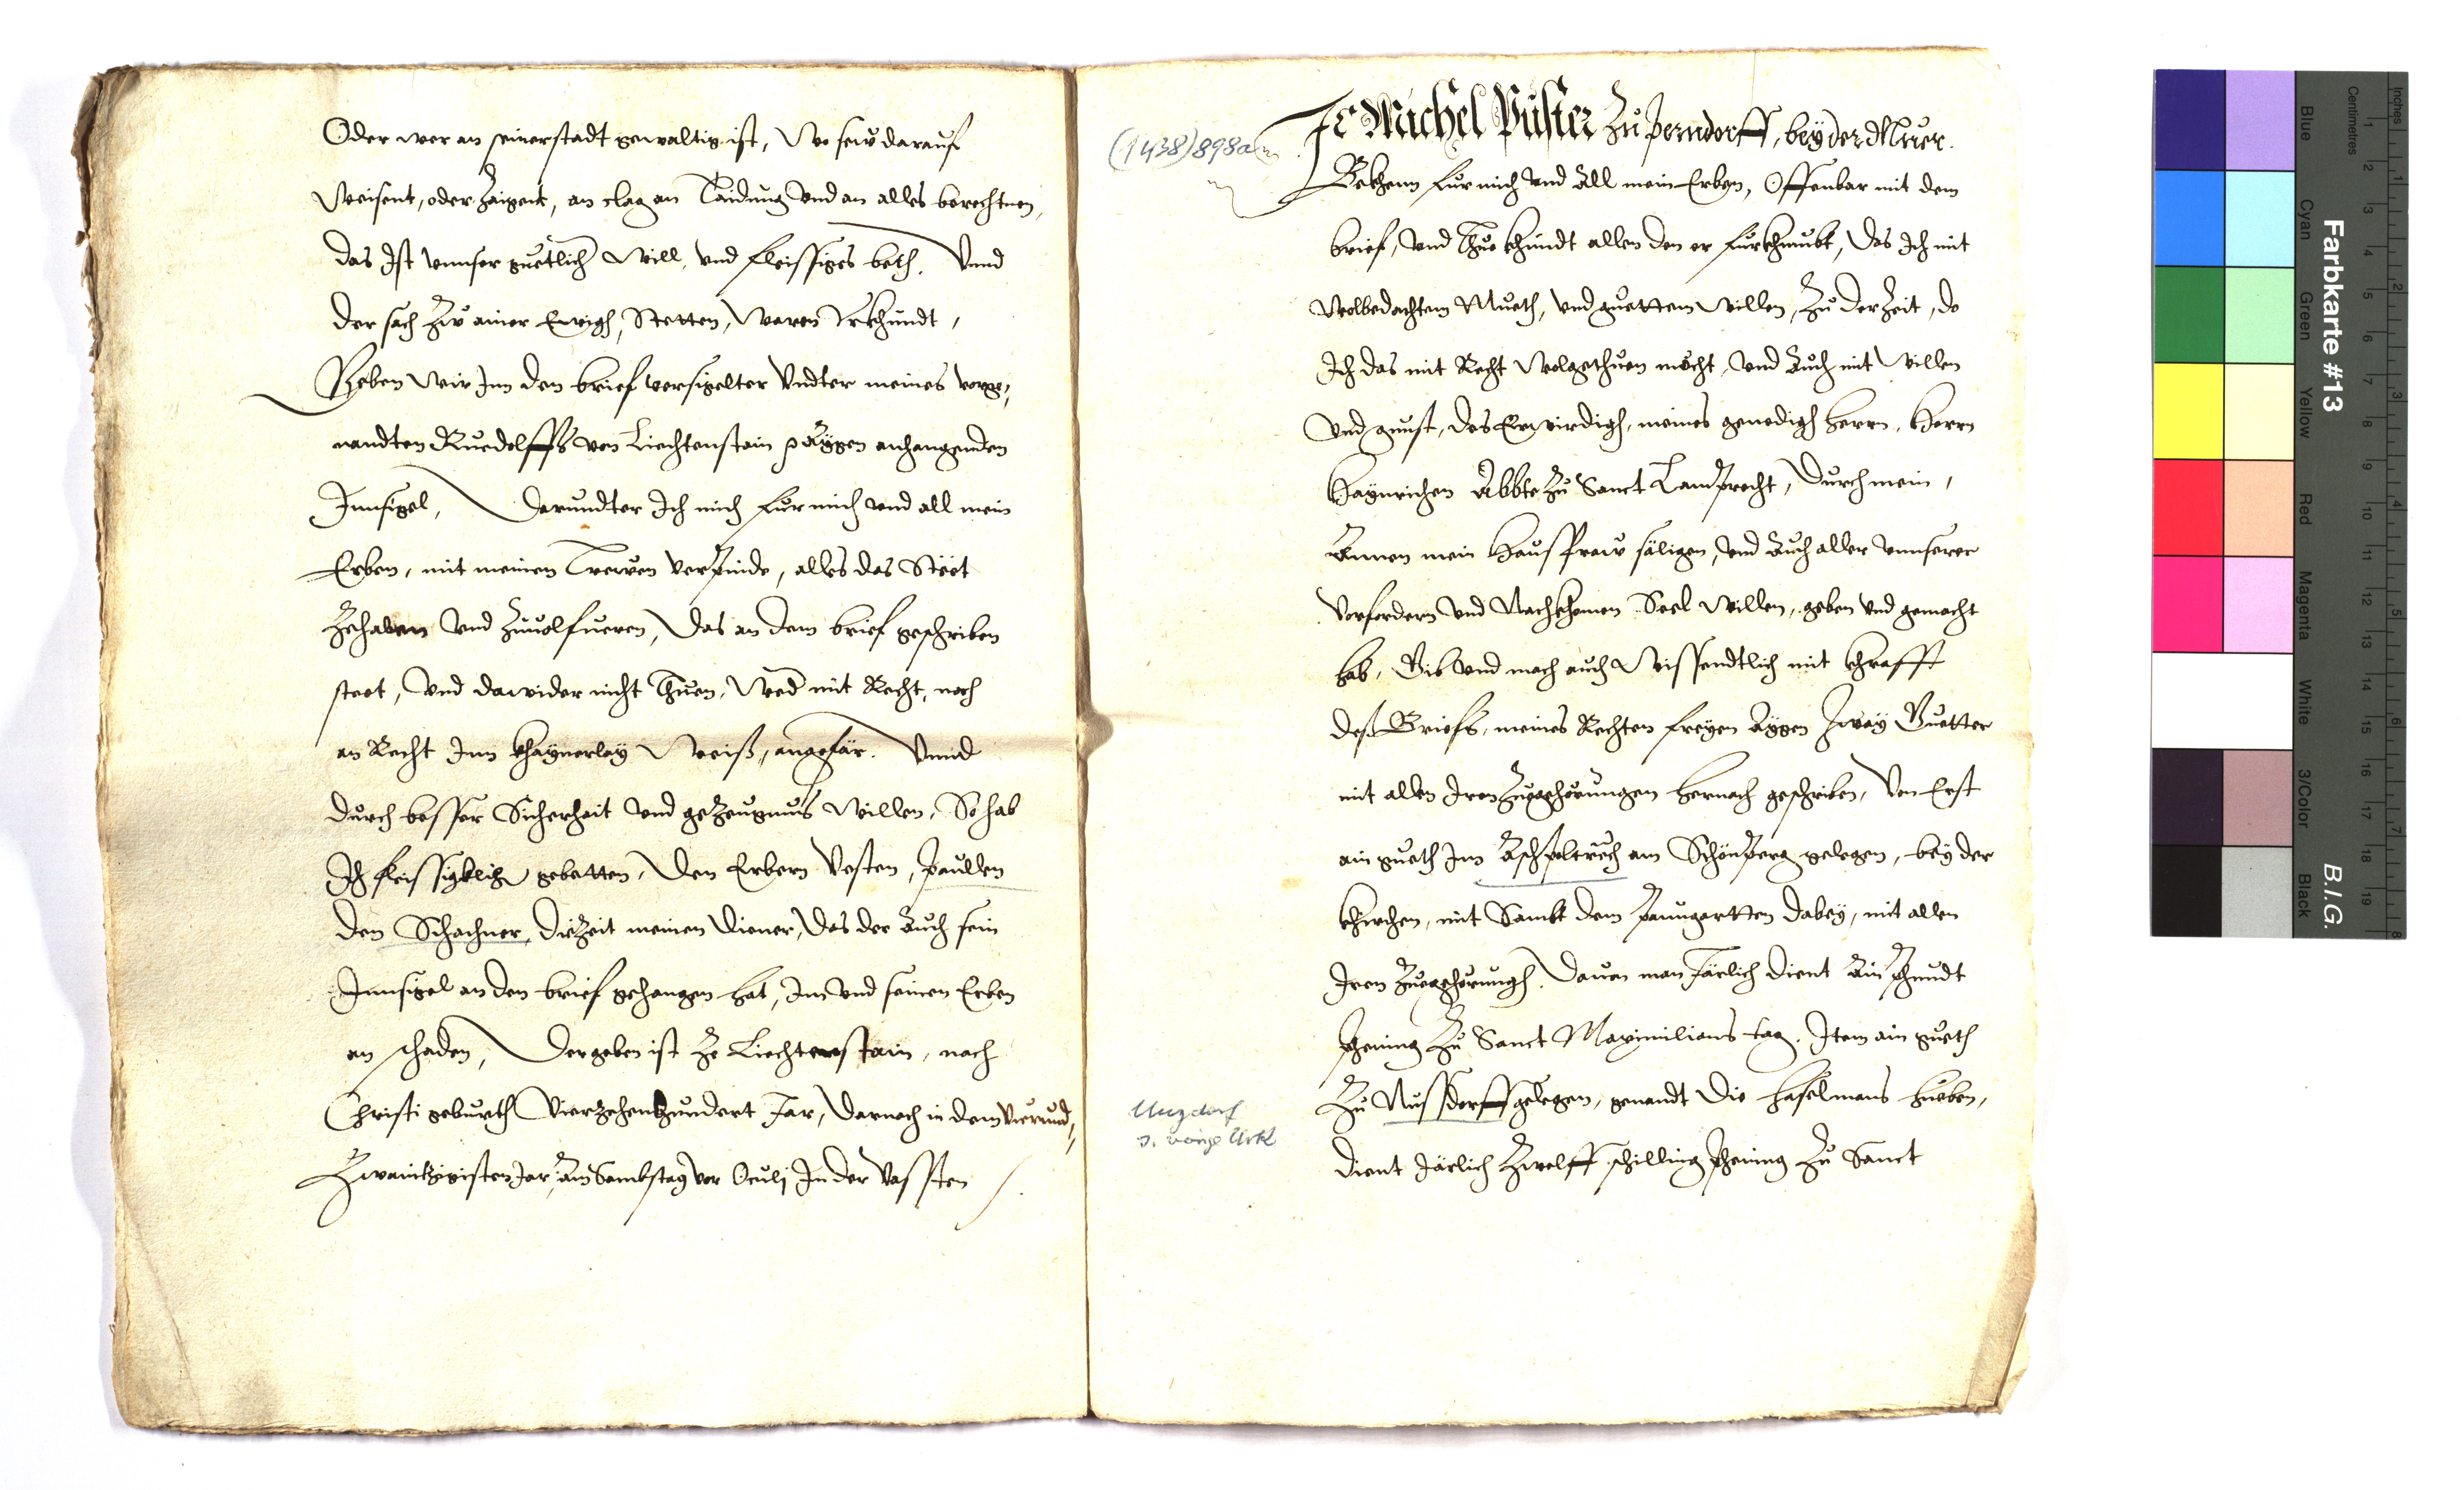 Oder wer an seinerstadt gewaltig ist, Wo sew darauf
Weisent, oder zaigent, an clag an Taidung vnd an alles berechtnen,
das Ist vnnser guetlich Will, vnd fleissiges beth. Vnnd
der sach zw ainer Ewigh, Stetten, Waren Urkhundt,
Geben Wir Inn den brief versigelter Vndter meines vorge,
nandten Ruedolffs von Liechtenstain aygen anhangunden
Innsigel, Darundter Ich mich fur mich vnd all mein
Erben, mit meinen Trewen verpinde, alles das Stëet
Zehaben vnd Zuuolfueren, Das an dem brief geschriben
steet, Vnd dawider nicht Thuen, Wed mit Recht, noch
an Recht Inn khaynerlay Weiß, angefär. Vnnd
durch besser Sicherhait vnd geZeugnus Willen, So hab
Ich fleissigklich gebetten, Den Erbern Vesten, Paullen
den Schachner, DieZeit meinen Diener, Das der Auch sein
Innsigel an den brief gehangen hat, Im vnd seinen Erben
an schaden, Der geben ist Ze Liechtenstain, nach
Christi geburth Vierzehenhundert Jar, Darnach in dem Vierund,
Zwaintzigisten Jar, Am Sambstag vor Oculj In der Vassten
(1438) 898a
Ich Michel Püster Zu Perndorff, bey der Muer.
Bekhenn fur mich vnd All mein Erben, Offenbar mit dem
brief, vnd Thue khundt allen den er furkhumbt, Das Ich mit
Wolbedachtem Mueth, vnd guettem willen, Zu der Zeit, do
Ich das mit Recht Wolgethuen mocht, vnd Auch mit Willen
Vnd gunst, des Erwirdigh, meines genedigh herrn, Herrn
Haynrichen Abbte Zu Sanct Lamprecht, Durch mein,
Annen mein Hausfraw säligen, vnd Auch aller vnnserer
Vorfordern vnd Nachkhomen Seel Willen, geben vnd gemacht
hab, Gib vnd mach auch Wissendtlich mit khrafft
deß Briefs, meines Rechten freyen Aygen Zway Guetter
mit allen Iren Zuegehörungen hernach geschriben, Von Erst
ain gueth Im Aschpeltrech am Schönperg gelegen, bey der
khirchen, mit Sambt dem Paumgartten dabey, mit allen
Iren Zuegehörungh. Dauon man Järlich Dient Ain Phundt
Phening Zu Sanct Maximilians tag. Item ain gueth
Zu Nussdorff gelegen, genandt Die Haselmans hueben,
Dient Järlich Zwelff schilling Phening Zu Sanct
Unzdorf
s. vorige Urk
Farbkarte #13
B.I.G.
Inches
Centimetres
Blue
Cyan
Green
Yellow
Red
Magenta
White
3/Color
Black
1 2 3 4 5 6 7 8 9 10 11 12 13 14 15 16 17 18 19
1 2 3 4 5 6 7 8